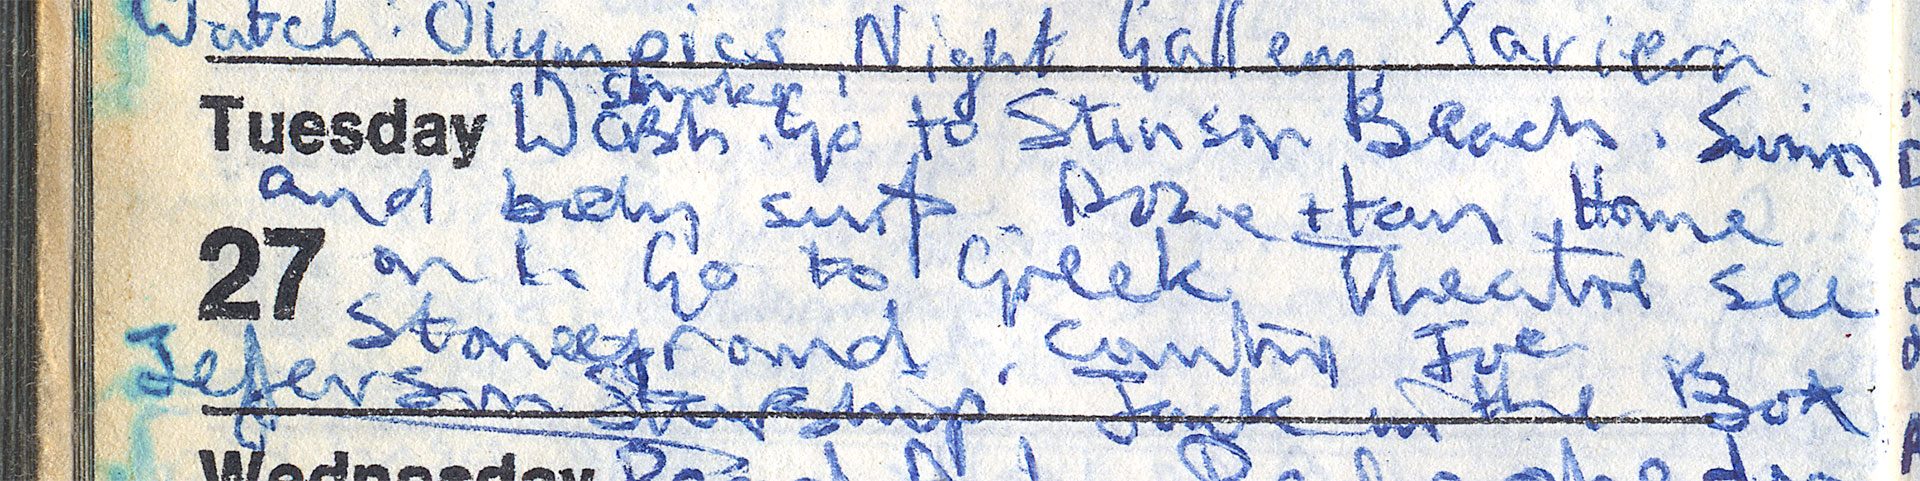 Watch Olympics, Night Gallery, Xaviera
smoke
Tuesday Wash. Go to Stinson Beach. Swim
and body surf. Doze + tan Home
27 on h. Go to Greek Theatre see
Stoneground, Country Joe
Jefferson Starship Jack in the Box
Wednesday